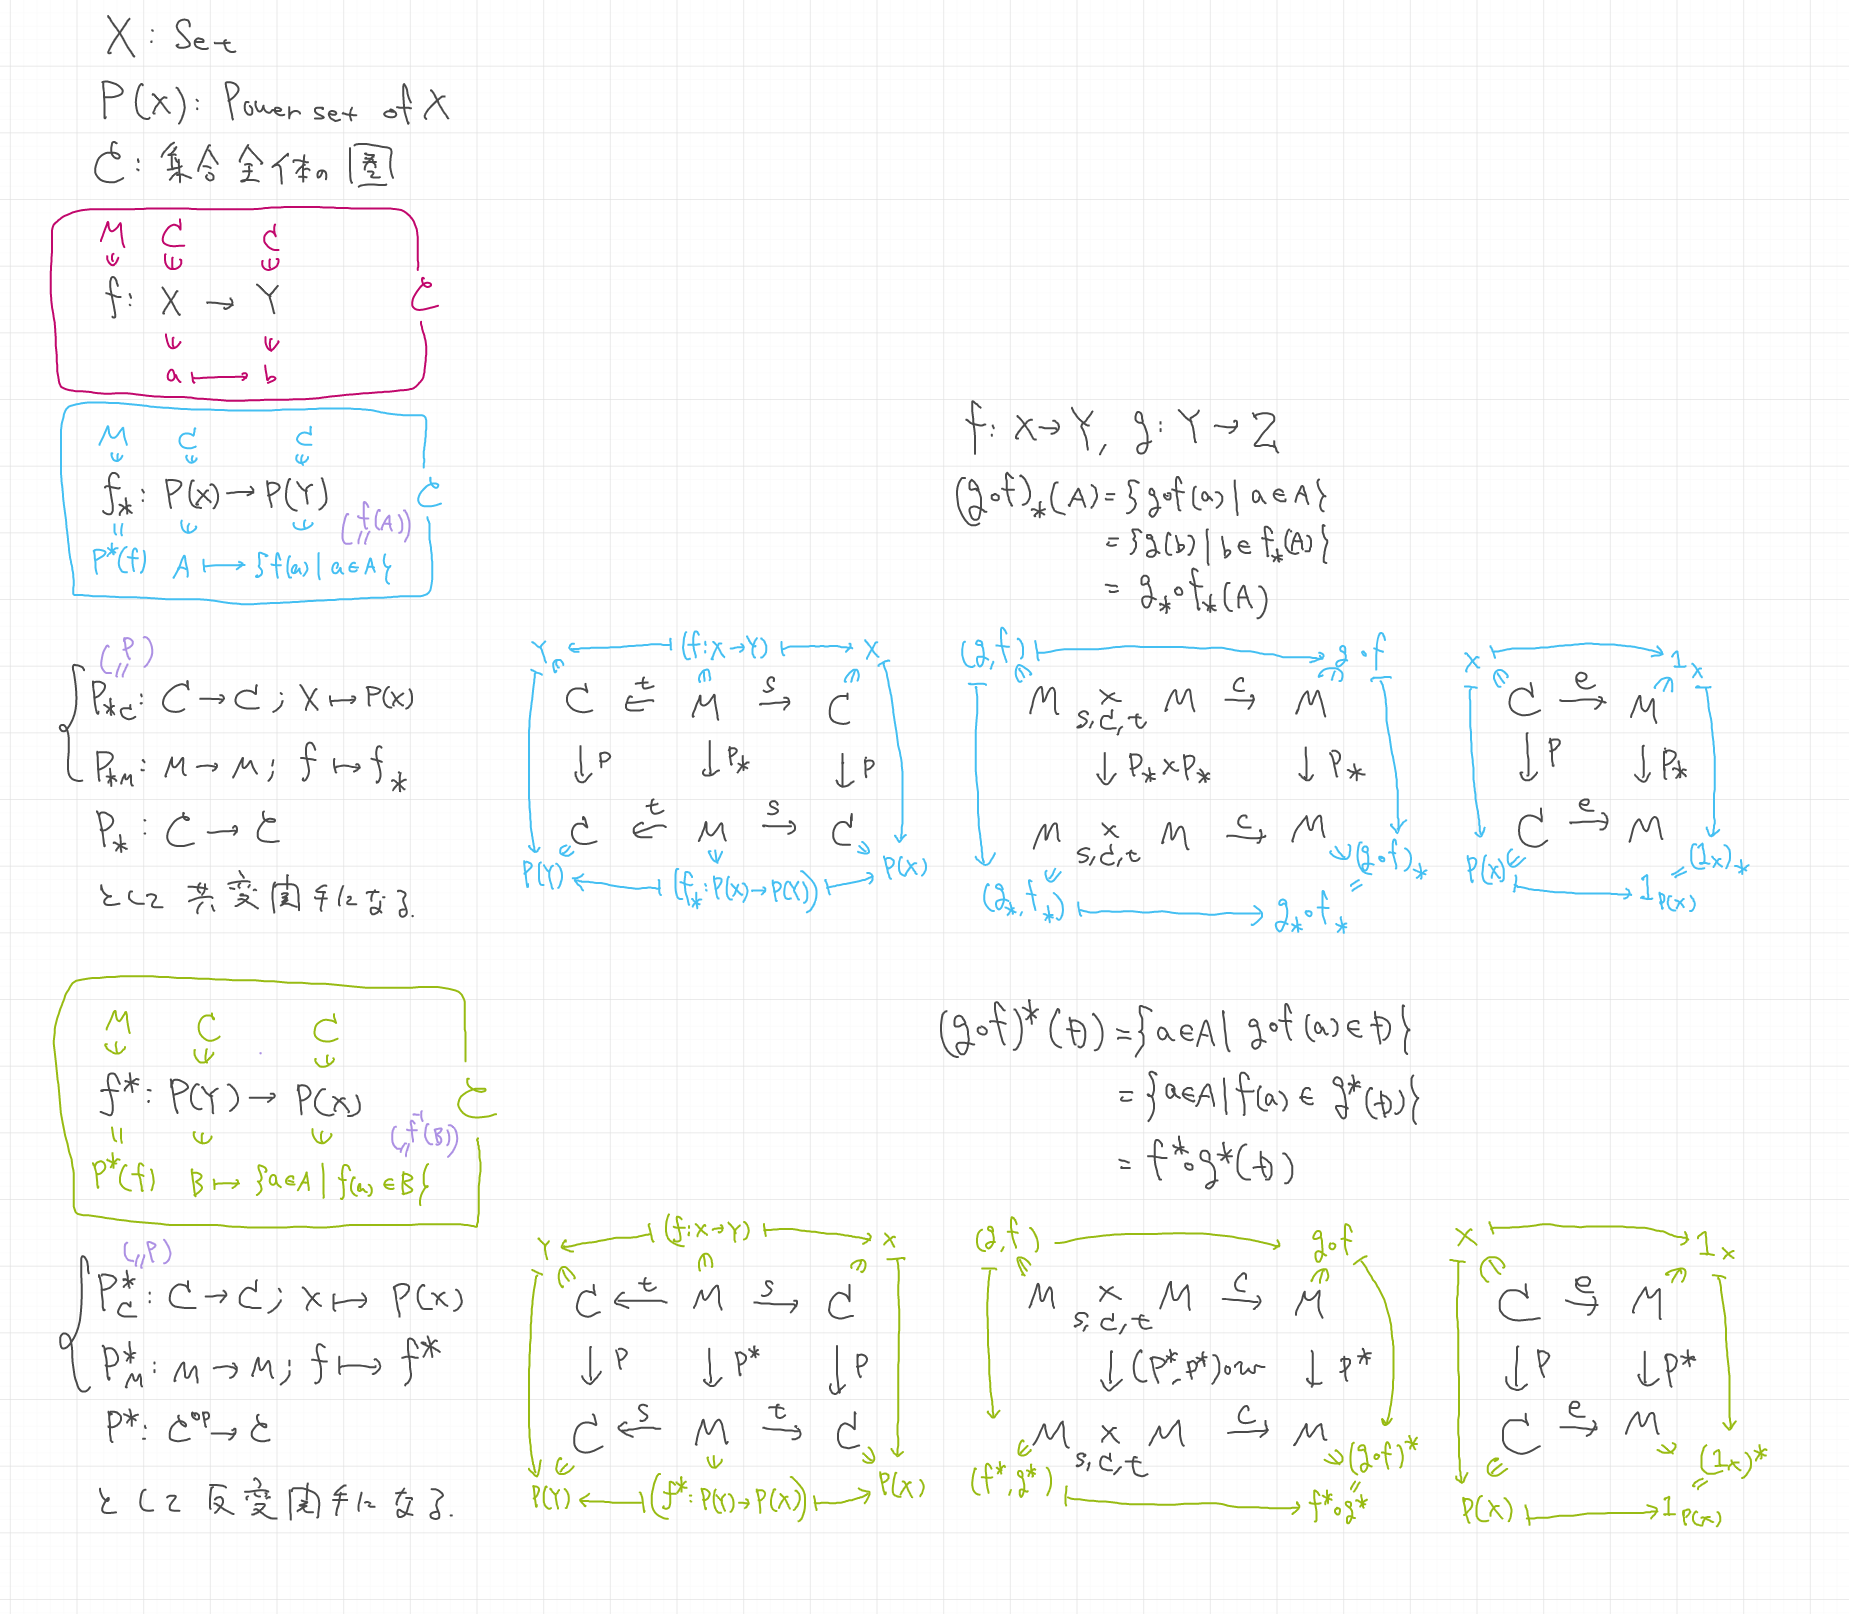 X : Set
P(X) : Power set of X
𝓒 : 集合全体の圏
M C C
f : X → Y 𝓒
a ↦ b
M C C
f_* : P(X) → P(Y) 𝓒
(f(A))
P*(f) A ↦ {f(a) | a ∈ A}
(P)
P_{*C} : C → C ; X ↦ P(X)
P_{*M} : M → M ; f ↦ f_*
P_* : 𝓒 → 𝓒
として共変関手になる.
f : X → Y, g : Y → Z
(g∘f)_*(A) = {g∘f(a) | a ∈ A}
= {g(b) | b ∈ f_*(A)}
= g_*∘f_*(A)
Y ← (f : X → Y) ↦ X
C ←t M →s C
↓P ↓P_* ↓P
C ←t M →s C
P(Y) ← (f_* : P(X) → P(Y)) ↦ P(X)
(g, f) ↦ g∘f
M ×_{s,C,t} M →c M
↓P_*×P_* ↓P_*
M ×_{s,C,t} M →c M
(g∘f)_*
(g_*, f_*) ↦ g_*∘f_*
X ↦ 1_X
C →e M
↓P ↓P_*
C →e M
P(X) ↦ 1_{P(X)} = (1_X)_*
M C C
f* : P(Y) → P(X) 𝓒
(f⁻¹(B))
P*(f) B ↦ {a ∈ A | f(a) ∈ B}
(P)
P*_C : C → C ; X ↦ P(X)
P*_M : M → M ; f ↦ f*
P* : 𝓒^op → 𝓒
として反変関手になる.
(g∘f)*(D) = {a ∈ A | g∘f(a) ∈ D}
= {a ∈ A | f(a) ∈ g*(D)}
= f*∘g*(D)
Y ← (f : X → Y) ↦ X
C ←t M →s C
↓P ↓P* ↓P
C ←s M →t C
P(Y) ← (f* : P(Y) → P(X)) ↦ P(X)
(g, f) → g∘f
M ×_{s,C,t} M →c M
↓(P*, P*)∘w ↓P*
M ×_{s,C,t} M →c M
(g∘f)*
(f*, g*) ↦ f*∘g*
X ↦ 1_X
C →e M
↓P ↓P*
C →e M
(1_X)*
P(X) ↦ 1_{P(X)}